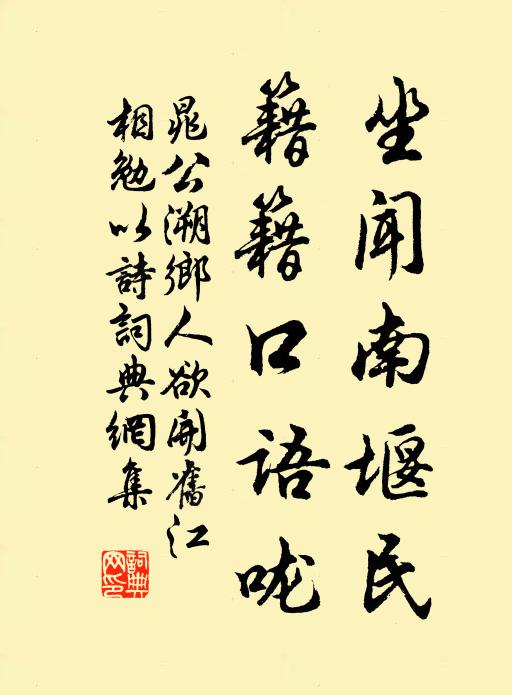 坐闻南堰民
籍籍口语咙
晁公溯鄉人欲開舊江
相勉以詩詞典網集
詞典網印